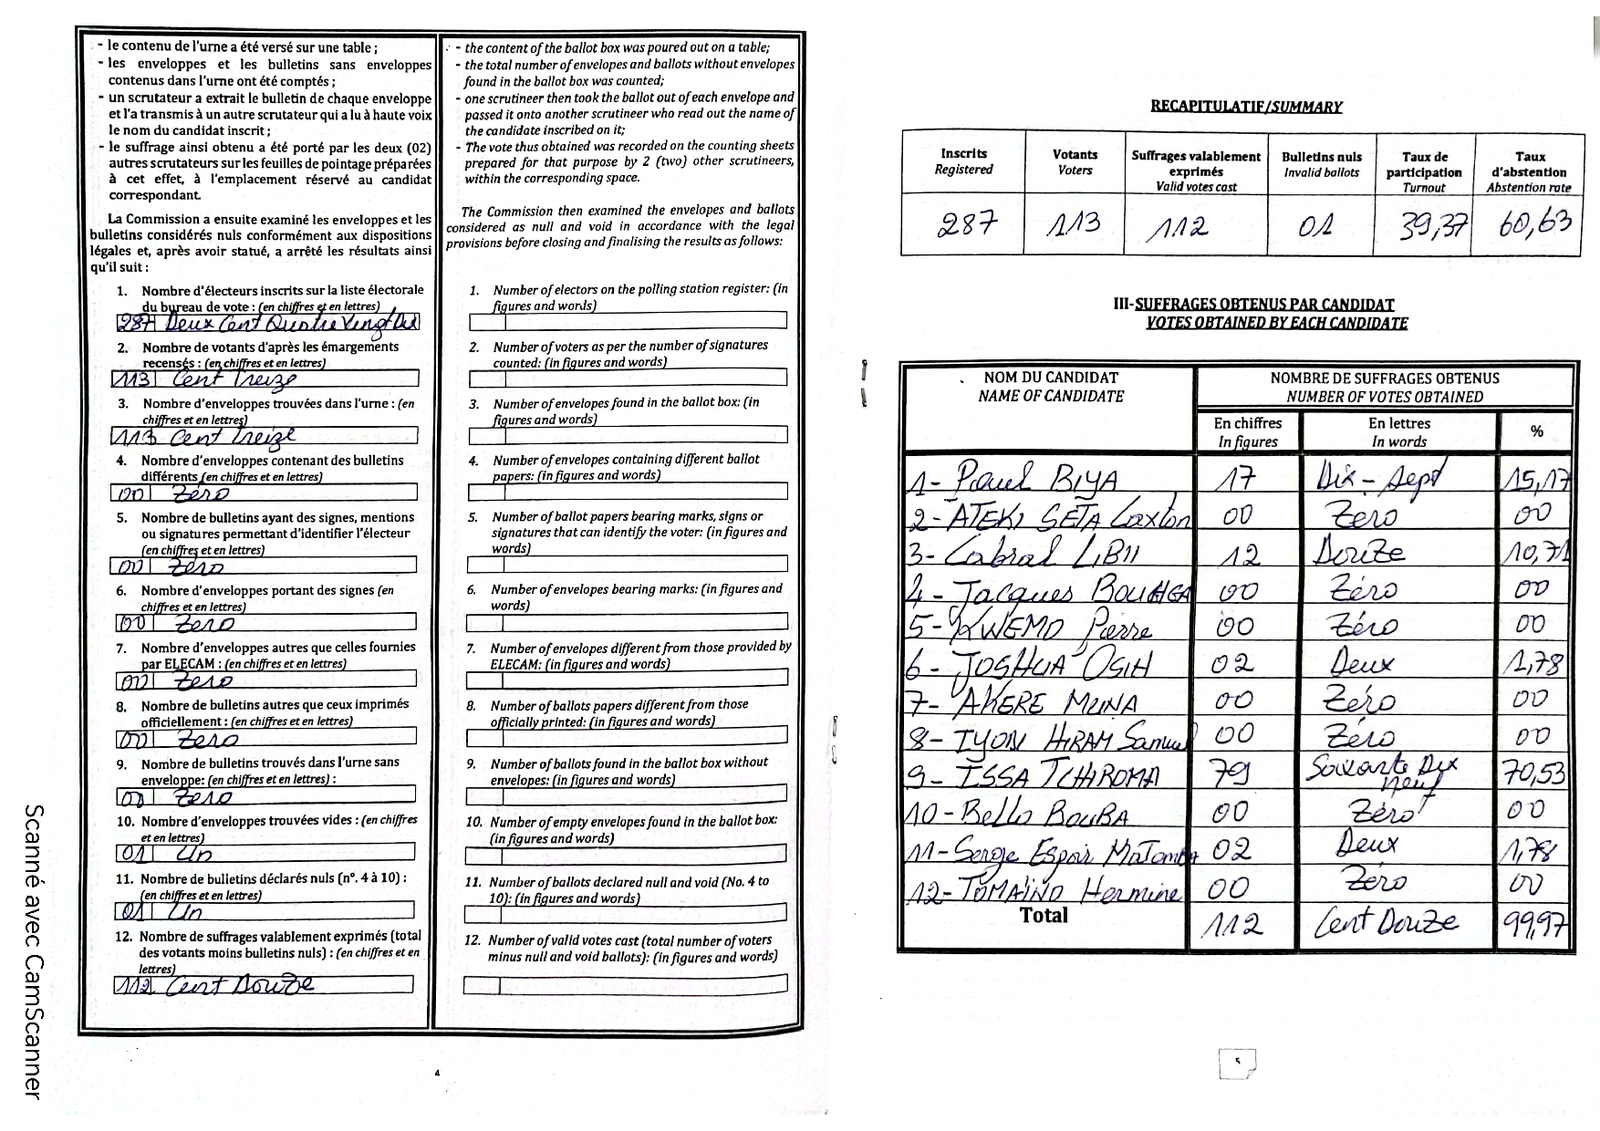 - le contenu de l'urne a été versé sur une table ;
- les enveloppes et les bulletins sans enveloppes
contenus dans l'urne ont été comptés ;
- un scrutateur a extrait le bulletin de chaque enveloppe
et l'a transmis à un autre scrutateur qui a lu à haute voix
le nom du candidat inscrit ;
- le suffrage ainsi obtenu a été porté par les deux (02)
autres scrutateurs sur les feuilles de pointage préparées
à cet effet, à l'emplacement réservé au candidat
correspondant.
La Commission a ensuite examiné les enveloppes et les
bulletins considérés nuls conformément aux dispositions
légales et, après avoir statué, a arrêté les résultats ainsi
qu'il suit :
1. Nombre d'électeurs inscrits sur la liste électorale
du bureau de vote : (en chiffres et en lettres)
287 Deux Cent Quatre Vingt
2. Nombre de votants d'après les émargements
recensés : (en chiffres et en lettres)
113 Cent Treize
3. Nombre d'enveloppes trouvées dans l'urne : (en
chiffres et en lettres)
113 Cent Treize
4. Nombre d'enveloppes contenant des bulletins
différents (en chiffres et en lettres)
00 Zero
5. Nombre de bulletins ayant des signes, mentions
ou signatures permettant d'identifier l'électeur
(en chiffres et en lettres)
00 Zero
6. Nombre d'enveloppes portant des signes (en
chiffres et en lettres)
00 Zero
7. Nombre d'enveloppes autres que celles fournies
par ELECAM : (en chiffres et en lettres)
00 Zero
8. Nombre de bulletins autres que ceux imprimés
officiellement : (en chiffres et en lettres)
00 Zero
9. Nombre de bulletins trouvés dans l'urne sans
enveloppe: (en chiffres et en lettres) :
00 Zero
10. Nombre d'enveloppes trouvées vides : (en chiffres
et en lettres)
01 Un
11. Nombre de bulletins déclarés nuls (n°. 4 à 10) :
(en chiffres et en lettres)
01 Un
12. Nombre de suffrages valablement exprimés (total
des votants moins bulletins nuls) : (en chiffres et en
lettres)
112 Cent Douze
- the content of the ballot box was poured out on a table;
- the total number of envelopes and ballots without envelopes
found in the ballot box was counted;
- one scrutineer then took the ballot out of each envelope and
passed it onto another scrutineer who read out the name of
the candidate inscribed on it;
- The vote thus obtained was recorded on the counting sheets
prepared for that purpose by 2 (two) other scrutineers,
within the corresponding space.
The Commission then examined the envelopes and ballots
considered as null and void in accordance with the legal
provisions before closing and finalising the results as follows:
1. Number of electors on the polling station register: (in
figures and words)
2. Number of voters as per the number of signatures
counted: (in figures and words)
3. Number of envelopes found in the ballot box: (in
figures and words)
4. Number of envelopes containing different ballot
papers: (in figures and words)
5. Number of ballot papers bearing marks, signs or
signatures that can identify the voter: (in figures and
words)
6. Number of envelopes bearing marks: (in figures and
words)
7. Number of envelopes different from those provided by
ELECAM: (in figures and words)
8. Number of ballots papers different from those
officially printed: (in figures and words)
9. Number of ballots found in the ballot box without
envelopes: (in figures and words)
10. Number of empty envelopes found in the ballot box:
(in figures and words)
11. Number of ballots declared null and void (No. 4 to
10): (in figures and words)
12. Number of valid votes cast (total number of voters
minus null and void ballots): (in figures and words)
4
Scanné avec CamScanner
RECAPITULATIF/SUMMARY
Inscrits Votants Suffrages valablement Bulletins nuls Taux de Taux
Registered Voters exprimés Invalid ballots participation d'abstention
Valid votes cast Turnout Abstention rate
287 113 112 01 39,37 60,63
III-SUFFRAGES OBTENUS PAR CANDIDAT
VOTES OBTAINED BY EACH CANDIDATE
NOM DU CANDIDAT NOMBRE DE SUFFRAGES OBTENUS
NAME OF CANDIDATE NUMBER OF VOTES OBTAINED
En chiffres En lettres %
In figures In words
1- Paul BIYA 17 Dix-Sept 15,17
2- ATEKI SETA Caxton 00 Zero 00
3- Cabral LIBII 12 Douze 10,71
4- Jacques BOUHGA 00 Zéro 00
5- KWEMO Pierre 00 Zéro 00
6- JOSHUA OSIH 02 Deux 1,78
7- AKERE MUNA 00 Zéro 00
8- IYON HIRAM Samuel 00 Zéro 00
9- ISSA TCHIROMA 79 Soixante Dix 70,53
Neuf
10- Bello BOUBA 00 Zéro 00
11- Serge Espoir Matomba 02 Deux 1,78
12- TOMAÏNO Hermine 00 Zéro 00
Total 112 Cent Douze 99,97
5